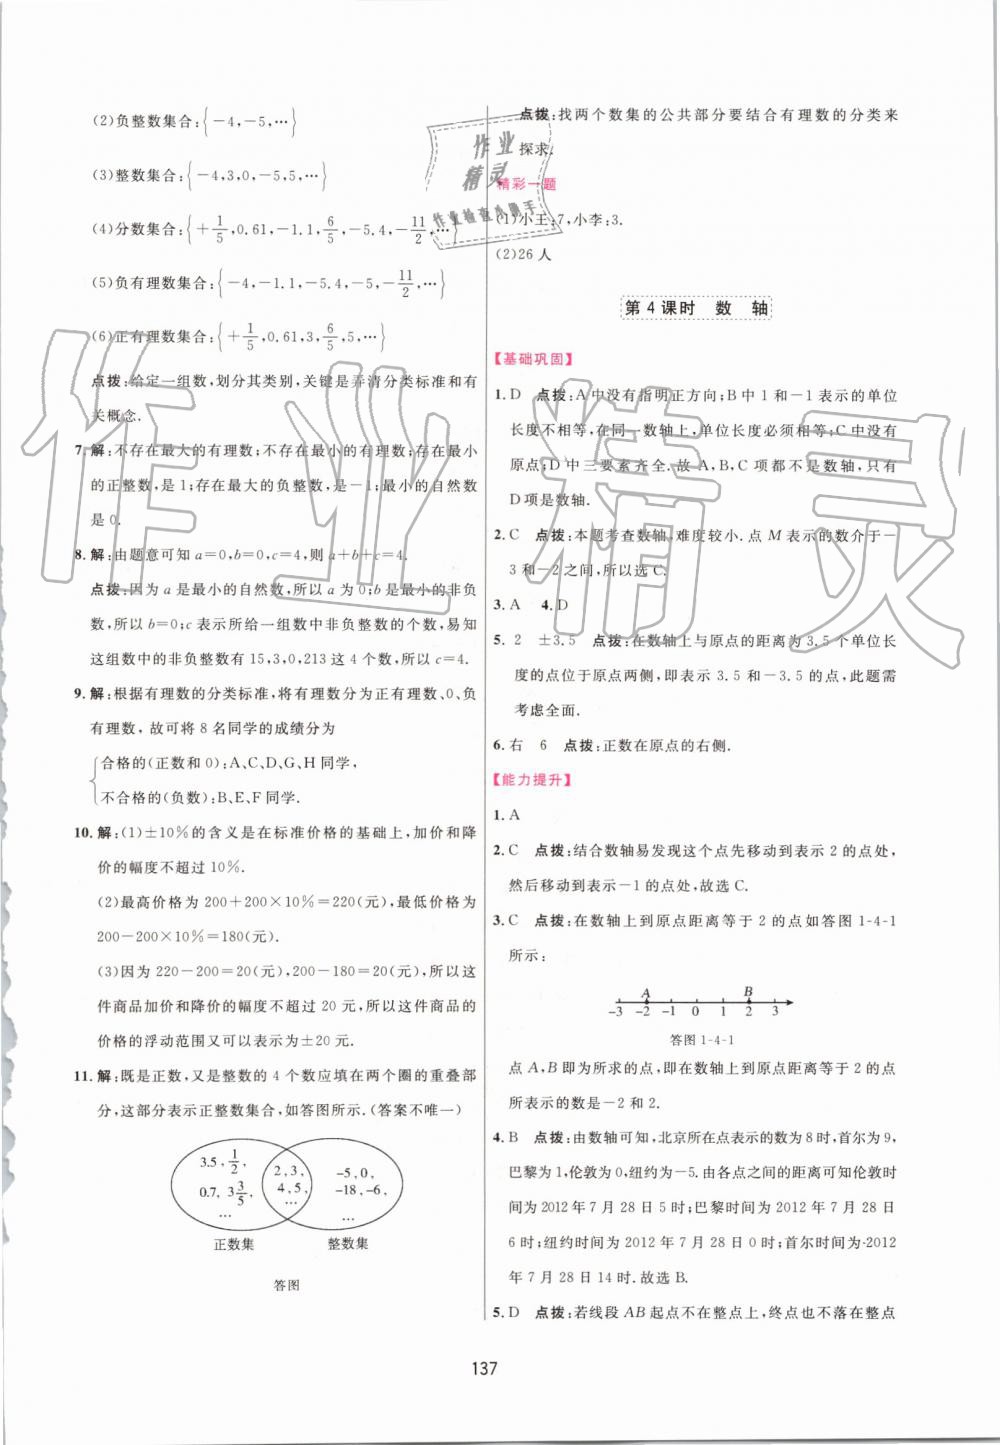 (2)负整数集合:{-4,-5,…}
(3)整数集合:{-4,3,0,-5,5,…}
(4)分数集合:{+1/5,0.61,-1.1,6/5,-5.4,-11/2,…}
(5)负有理数集合:{-4,-1.1,-5.4,-5,-11/2,…}
(6)正有理数集合:{+1/5,0.61,3,6/5,5,…}
点拨:给定一组数,划分其类别,关键是弄清分类标准和有
关概念.
7. 解:不存在最大的有理数;不存在最小的有理数;存在最小
的正整数,是1;存在最大的负整数,是-1;最小的自然数
是0.
8. 解:由题意可知a=0,b=0,c=4,则a+b+c=4.
点拨:因为a是最小的自然数,所以a为0;b是最小的非负
数,所以b=0;c表示所给一组数中非负整数的个数,易知
这组数中的非负整数有15,3,0,213这4个数,所以c=4.
9. 解:根据有理数的分类标准,将有理数分为正有理数、0、负
有理数,故可将8名同学的成绩分为
合格的(正数和0):A、C、D、G、H同学,
不合格的(负数):B、E、F同学.
10. 解:(1)±10%的含义是在标准价格的基础上,加价和降
价的幅度不超过10%.
(2)最高价格为200+200×10%=220(元),最低价格为
200-200×10%=180(元).
(3)因为220-200=20(元),200-180=20(元),所以这
件商品加价和降价的幅度不超过20元,所以这件商品的
价格的浮动范围又可以表示为±20元.
11. 解:既是正数,又是整数的4个数应填在两个圈的重叠部
分,这部分表示正整数集合,如答图所示.(答案不唯一)
3.5,1/2,
0.7,3 3/5,
…
2,3,
4,5,
…
-5,0,
-18,-6,
…
正数集 整数集
答图
点拨:找两个数集的公共部分要结合有理数的分类来
探求.
精彩一题
(1)小王:7,小李:3.
(2)26人
第4课时 数 轴
【基础巩固】
1. D 点拨:A中没有指明正方向;B中1和-1表示的单位
长度不相等,在同一数轴上,单位长度必须相等;C中没有
原点;D中三要素齐全.故A,B,C项都不是数轴,只有
D项是数轴.
2. C 点拨:本题考查数轴,难度较小.点M表示的数介于-
3和-2之间,所以选C.
3. A 4. D
5. 2 ±3.5 点拨:在数轴上与原点的距离为3.5个单位长
度的点位于原点两侧,即表示3.5和-3.5的点,此题需
考虑全面.
6. 右 6 点拨:正数在原点的右侧.
【能力提升】
1. A
2. C 点拨:结合数轴易发现这个点先移动到表示2的点处,
然后移动到表示-1的点处,故选C.
3. C 点拨:在数轴上到原点距离等于2的点如答图1-4-1
所示:
A B
-3 -2 -1 0 1 2 3
答图1-4-1
点A,B即为所求的点,即在数轴上到原点距离等于2的点
所表示的数是-2和2.
4. B 点拨:由数轴可知,北京所在点表示的数为8时,首尔为9,
巴黎为1,伦敦为0,纽约为-5.由各点之间的距离可知伦敦时
间为2012年7月28日5时;巴黎时间为2012年7月28日
6时;纽约时间为2012年7月28日0时;首尔时间为2012
年7月28日14时.故选B.
5. D 点拨:若线段AB起点不在整点上,终点也不落在整点
137
作业
精灵
作业检查小助手
作业精灵